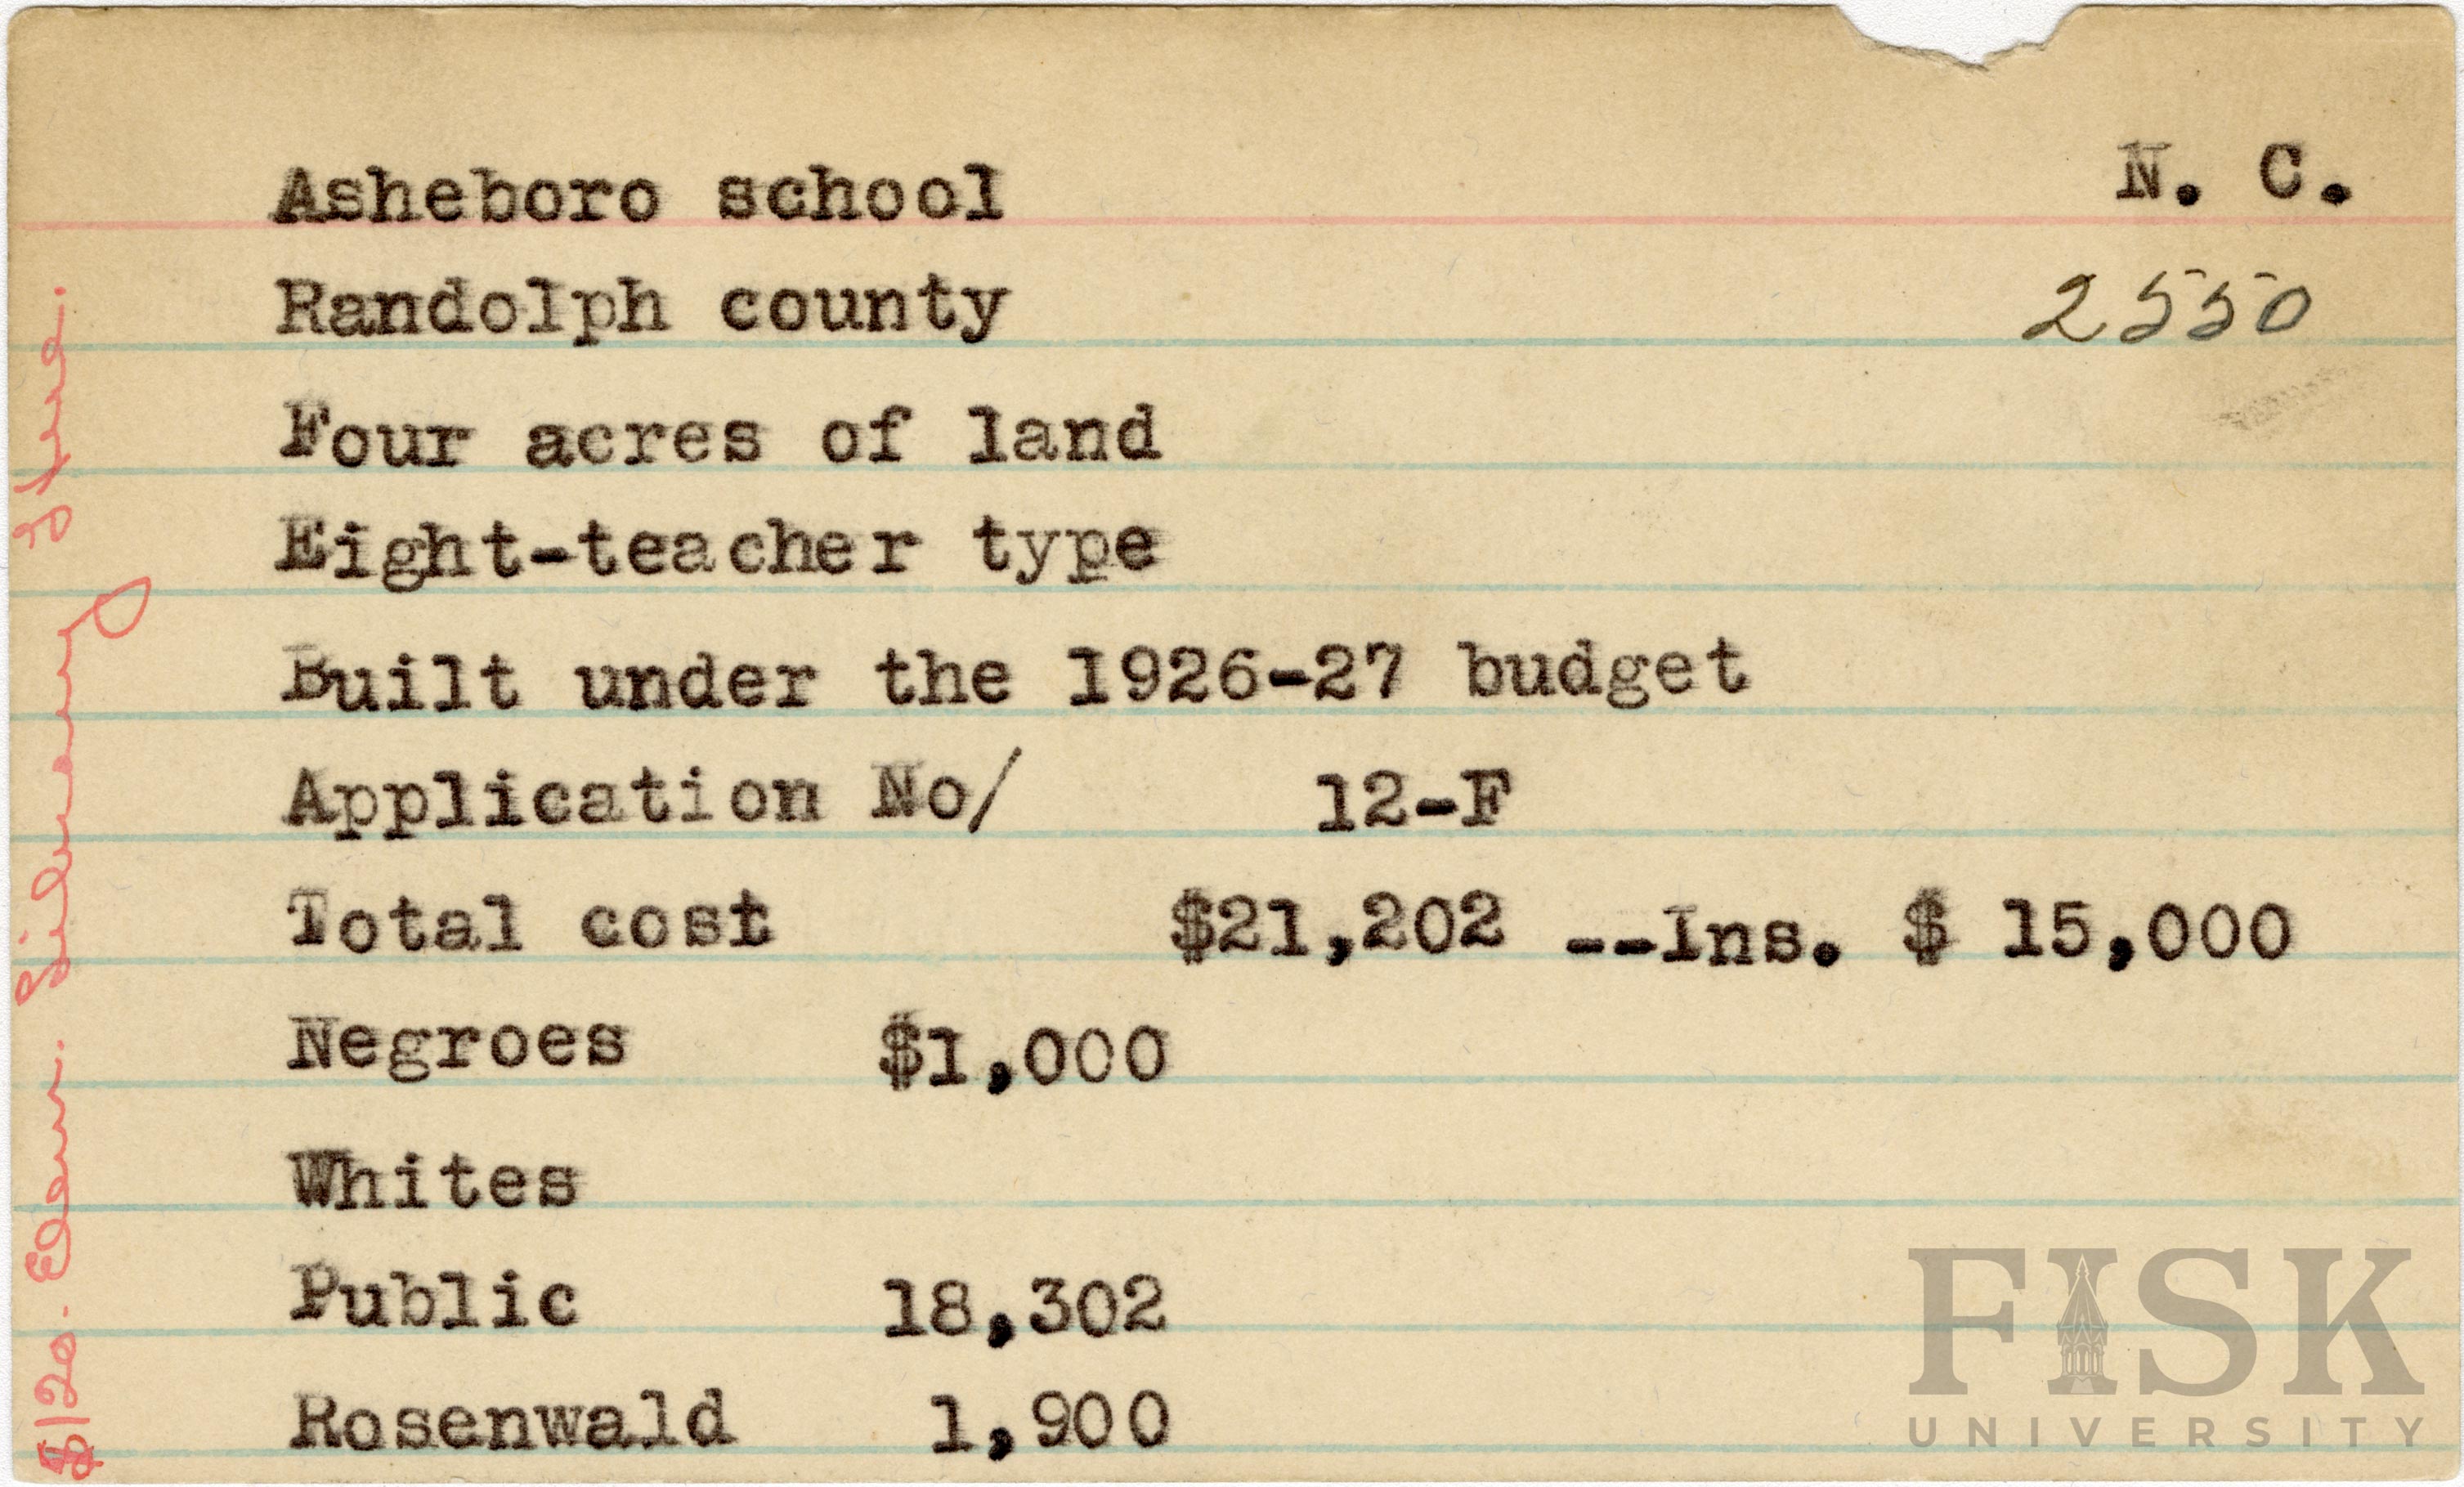 Asheboro school N. C.
Randolph county 2550
Four acres of land
Eight-teacher type
Built under the 1926-27 budget
Application No/ 12-F
Total cost $21,202 --Ins. $ 15,000
Negroes $1,000
Whites
Public 18,302
Rosenwald 1,900
$120. Elem. Library
FISK
UNIVERSITY